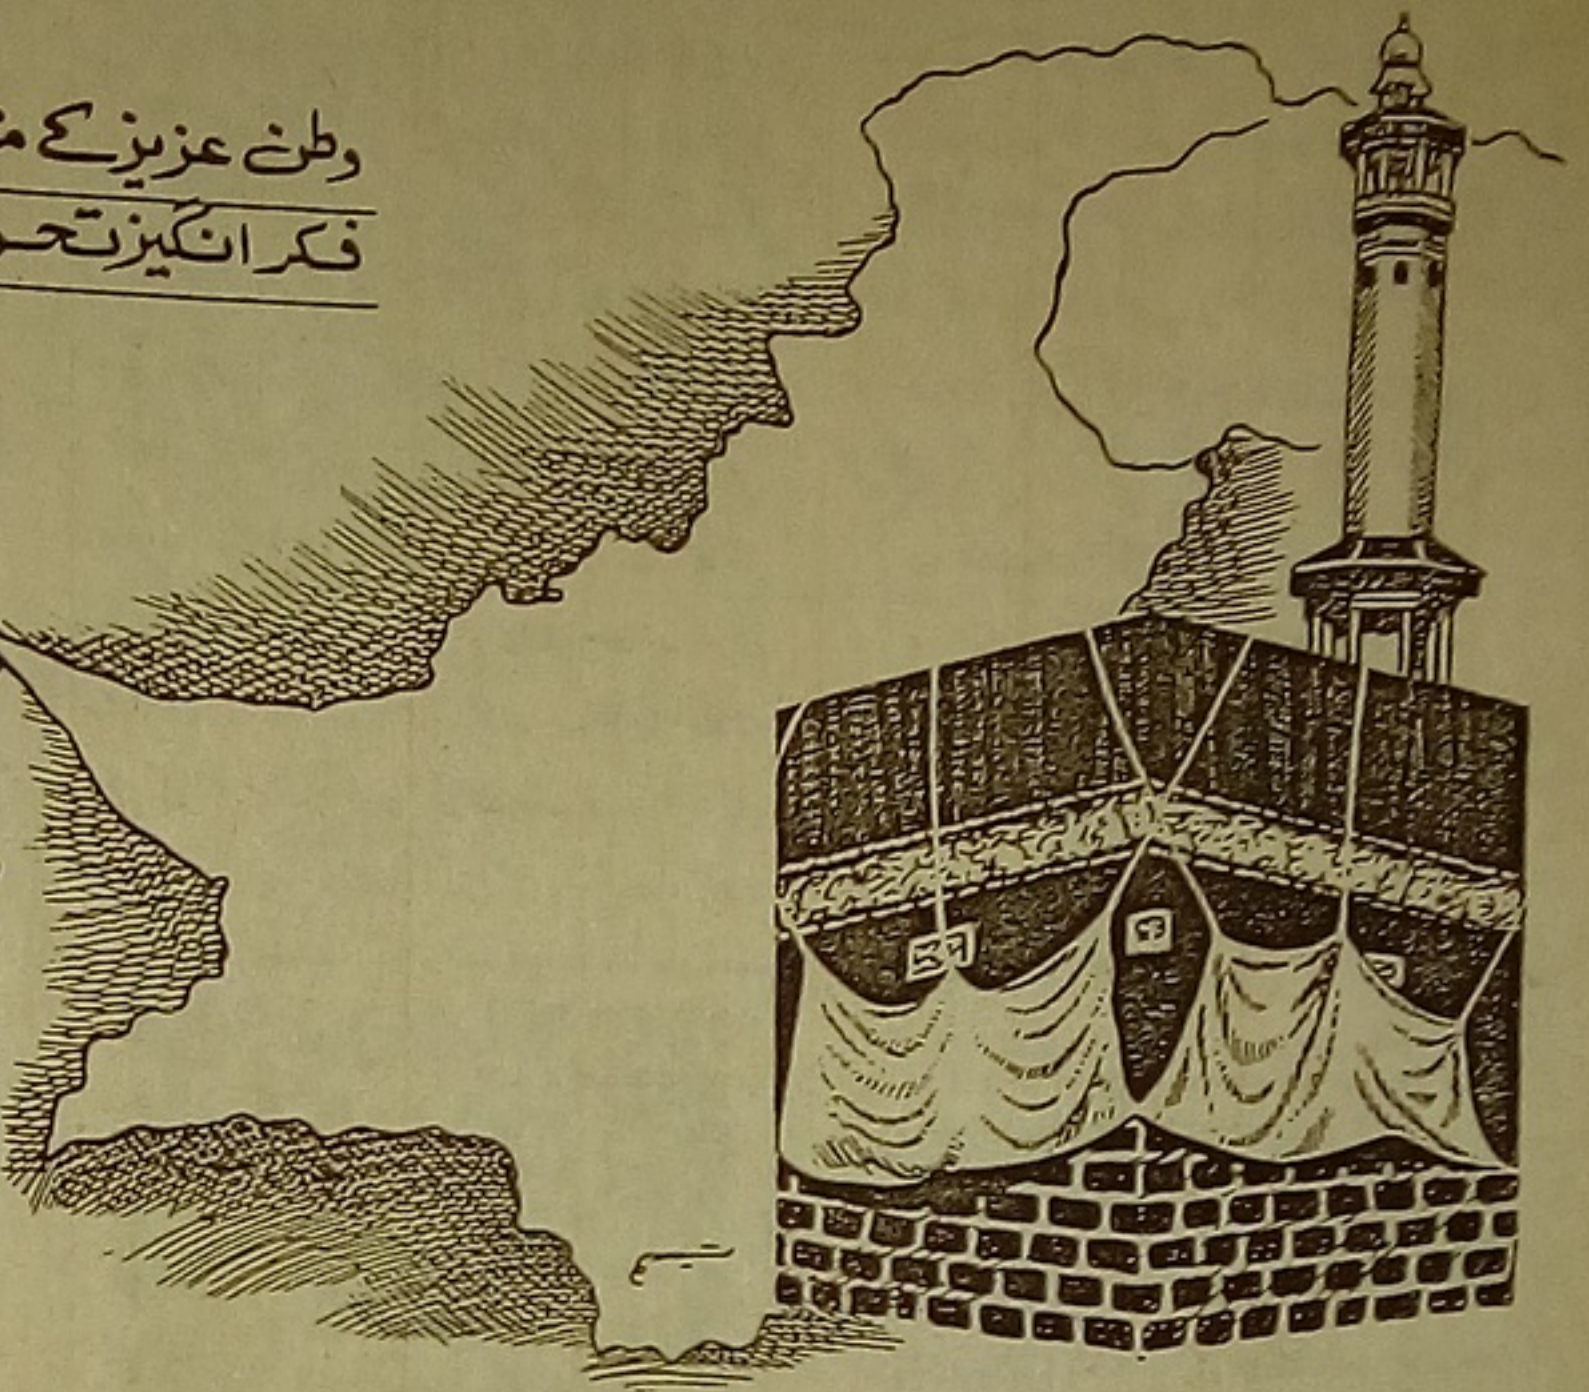 وطن عزیز کے
فکر انگیز